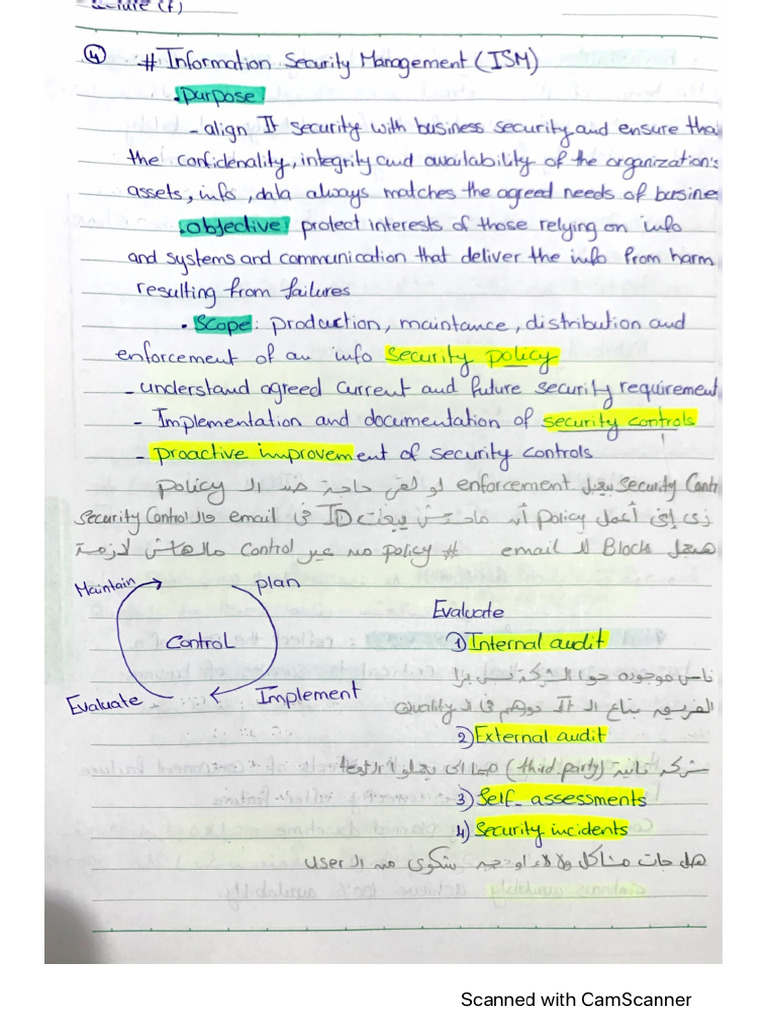 ④ # Information Security Management (ISM)
• purpose:
- align It security with business security and ensure tha
the confidenality, integrity and availability of the organization's
assets, info, data always matches the agreed needs of busine
• objective: protect interests of those relying on info
and systems and communication that deliver the info from harm
resulting from failures
• Scope: production, maintance, distribution and
enforcement of an info security policy
- understand agreed current and future security requirement
- Implementation and documentation of security controls
- proactive improvement of security controls
Security Contr بيعمل enforcement لو لقى حاجة ضد الـ policy
زى إنى أعمل policy أنه ماحدش يبعت ID فى email فالـ Security Control
هيعمل Block للـ email # policy من غير Control مالهاش لازمة
Maintain
plan
Control
Evaluate
Implement
Evaluate
1) Internal audit
ناس موجوده جوا الشركة بس برا
الفريق بتاع الـ It دوهم فى الـ Quality
2) External audit
شركه تانية (third party) هما الى يعملوا الـ test
3) Self_ assessments
4) Security incidents
هل جات مشاكل ولا لا، او جيه شكوى من الـ user
Scanned with CamScanner